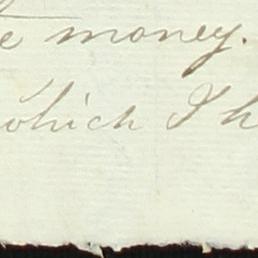 e money.
which I h